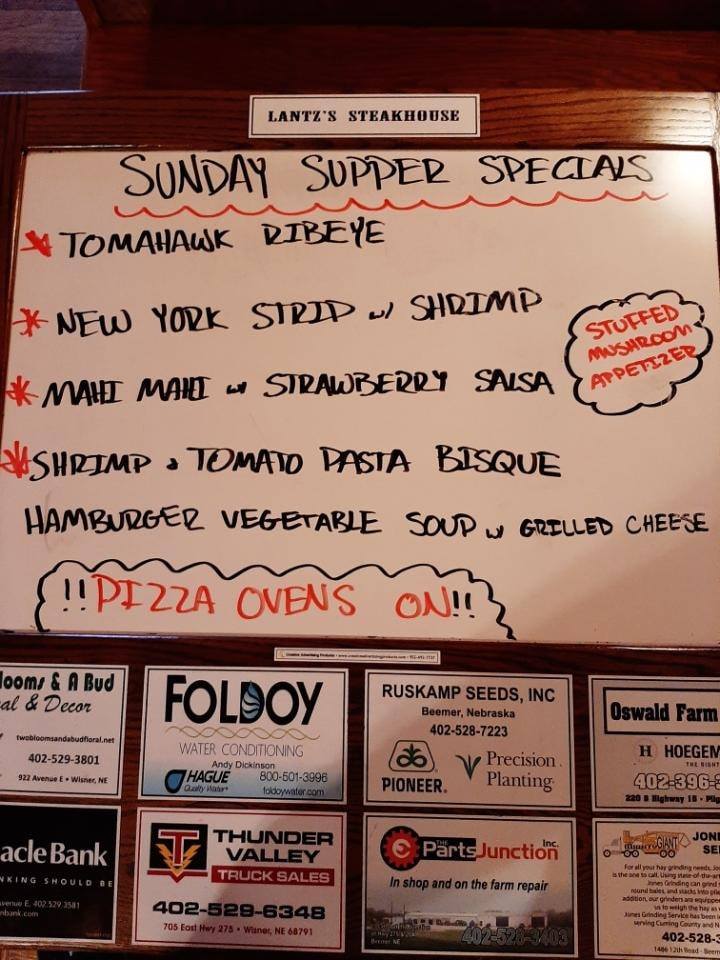 LANTZ'S STEAKHOUSE
SUNDAY SUPPER SPECIALS
* TOMAHAWK RIBEYE
* NEW YORK STRIP w/ SHRIMP
* MAHI MAHI w/ STRAWBERRY SALSA
STUFFED
MUSHROOM
APPETIZER
* SHRIMP & TOMATO PASTA BISQUE
HAMBURGER VEGETABLE SOUP w/ GRILLED CHEESE
!!PIZZA OVENS ON!!
looms & A Bud
al & Decor
twobloomsandabudfloral.net
402-529-3801
922 Avenue E • Wisner, NE
FOLDOY
WATER CONDITIONING
Andy Dickinson
HAGUE
Quality Water
800-501-3996
foldoywater.com
RUSKAMP SEEDS, INC
Beemer, Nebraska
402-528-7223
PIONEER.
Precision
Planting
Oswald Farm
H HOEGEM
THE RIGHT
402-396-3
acle Bank
NKING SHOULD BE
Avenue E, 402.529.3581
nbank.com
T
THUNDER
VALLEY
TRUCK SALES
402-529-6348
705 East Hwy 275 • Wisner, NE 68791
THE
Parts Junction Inc.
In shop and on the farm repair
Beemer NE
402-528-3403
GIANT
JON
SE
For all your hay grinding needs,
is the one to call. Using state-of-the-art
Jones Grinding can grind
round bales, and stacks into
addition, our grinders are equipped
us to weigh the hay as
Jones Grinding Service has been
serving Cuming County and
402-528-3